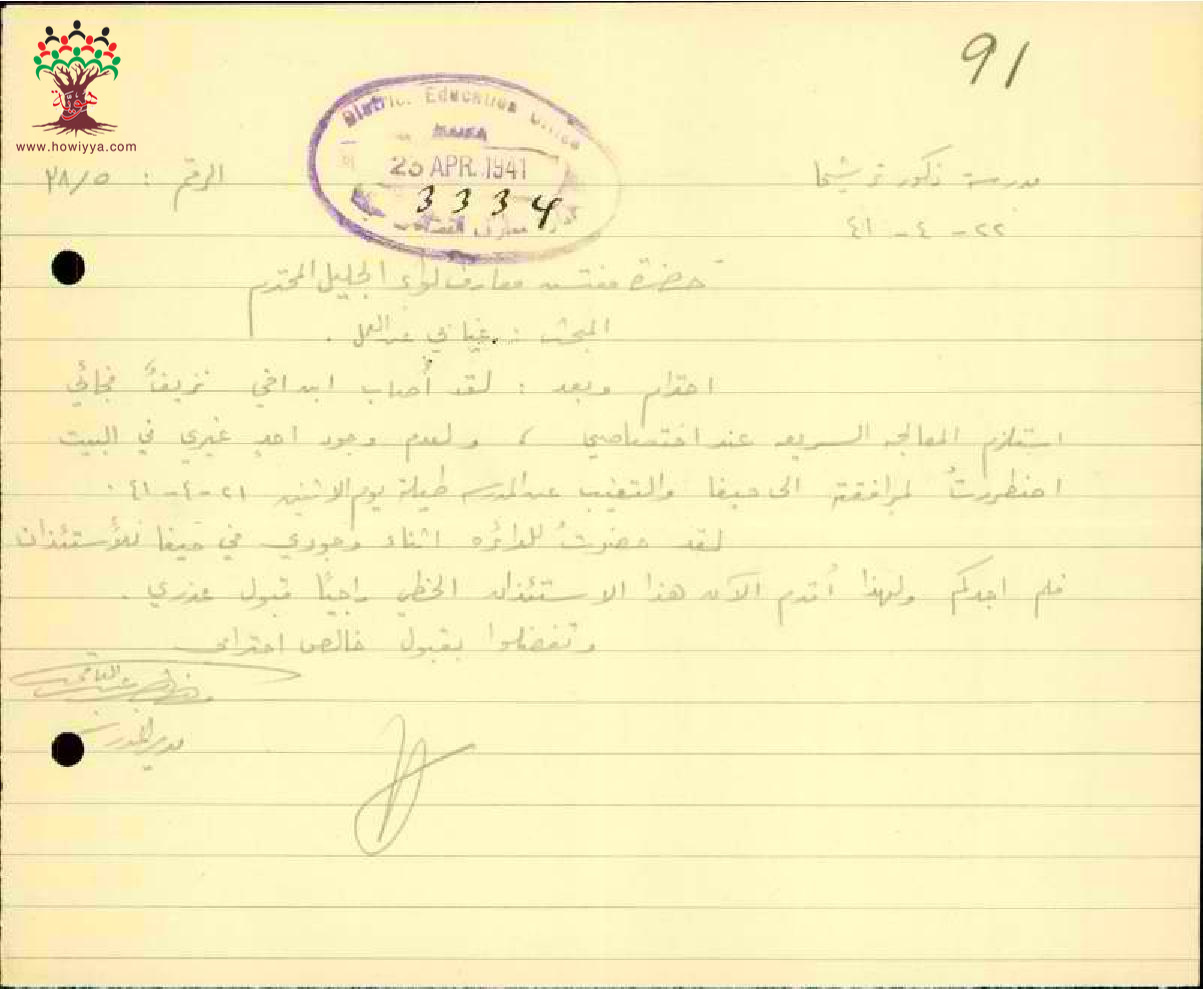 91
هوية
www.howiyya.com
District Education Office
HAIFA
23 APR. 1941
3334
مدرسة ذكور ترشيحا
الرقم : ٢٨/٥
٢٢ - ٤ - ٤١
حضرة مفتش معارف لواء الجليل المحترم
المبحث : غيابي عن العمل .
احترام وبعد : لقد أصاب ابن اخي نزيفاً فجائي
استلزم المعالجه السريعه عند اختصاصي ، ولعدم وجود احدٍ غيري في البيت
اضطررتُ لمرافقته الى حيفا والتغيب عن المدرسه طيلة يوم الاثنين ٢١-٤-٤١ .
لقد حضرتُ للدائره اثناء وجودي في حيفا للأستئذان
فلم اجدكم ولهذا أقدم الآن هذا الاستئذان الخطي راجيًا قبول عذري .
وتفضلوا بقبول خالص احترامي
مدير المدرسة